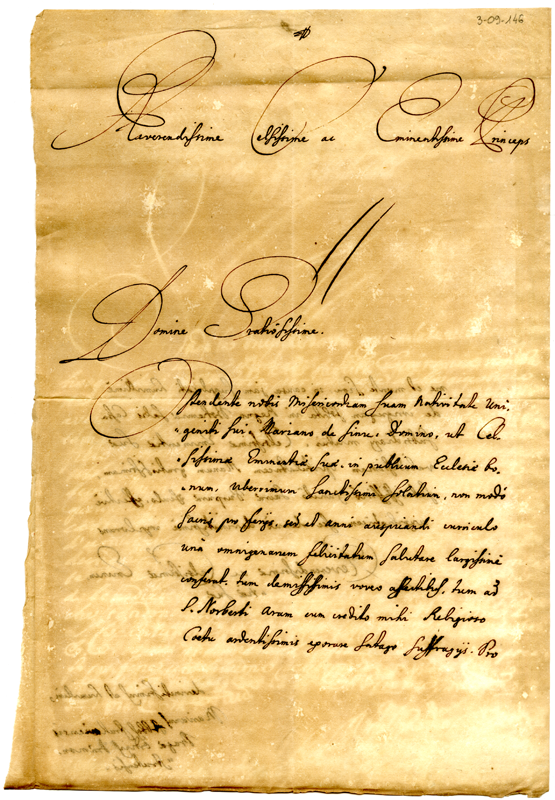 3-09-146
Reverendissime Celsissime ac Eminentissime Princeps
Domine Gratiosissime.
Ostendente nobis Misericordiam suam Nativitate Uni,
„geniti sui, Mariano de sinu, Domino, ut Cel„
„sissimæ Eminentiæ suæ, in publicum Ecclesiæ bo„
„num, uberrimum Sanctissimi solatium, non modò
sacris pro ferijs, sed et anni arripienti curriculo
unà omnigenarum felicitatum salutare largissimè
conferat, tum demississimis voveo affectibus, tum ad
S. Norberti Aram cum credito mihi Religioso
Coetu ardentissimis exorare satago suffragijs. Pro